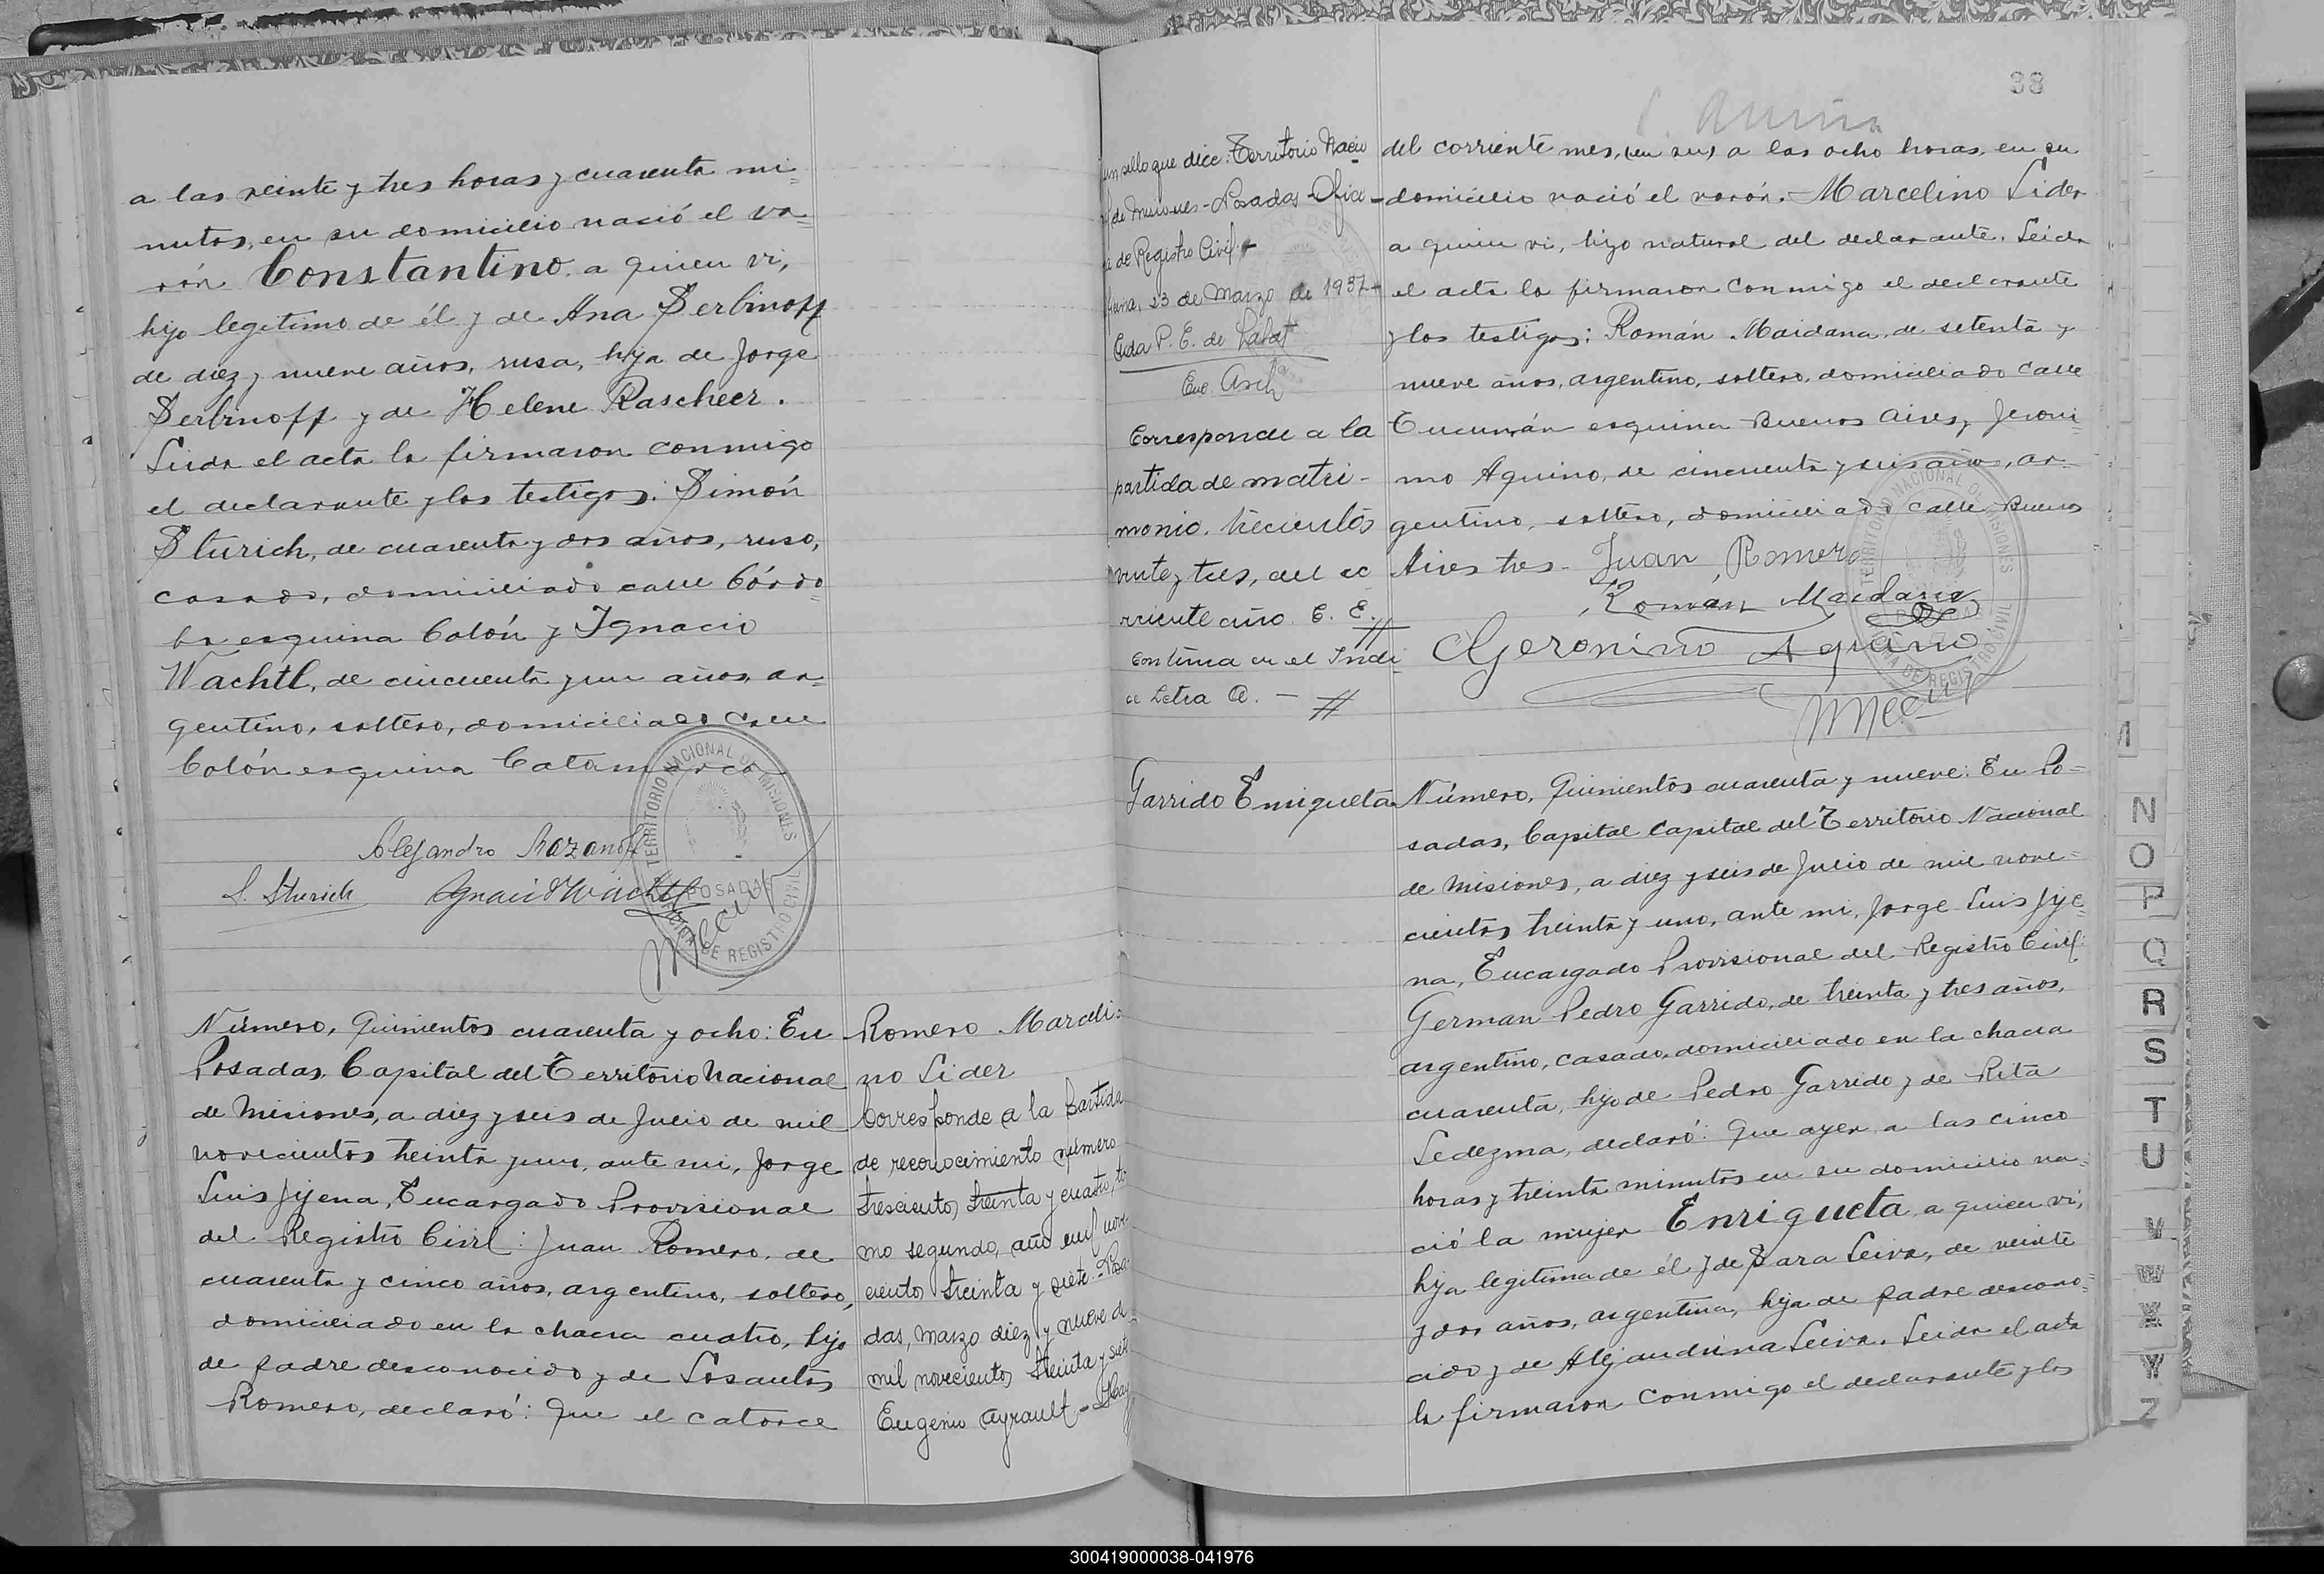 a las veinte y tres horas y cuarenta mi=
nutos, en su domicilio nació el va=
rón Constantino a quien vi,
hijo legítimo de él y de Ana Serbinoff
de diez y nueve años, rusa, hija de Jorge
Serbinoff y de Helene Rascheer.
Leida el acta la firmaron conmigo
el declarante y los testigos: Simón
Sturich, de cuarenta y dos años, ruso,
casado, domiciliado calle Córdo=
ba esquina Colón y Ignacio
Wachtl, de cincuenta y un años, ar=
gentino, soltero, domiciliado calle
Colón esquina Catamarca
Alejandro Razanoff
S. Sturich Ignacio Wachtl
TERRITORIO NACIONAL DE MISIONES
POSADAS
DE REGISTRO CIVIL
Número, Quinientos cuarenta y ocho: En
Posadas, Capital del Territorio Nacional
de Misiones, a diez y seis de Julio de mil
novecientos treinta y uno, ante mi, Jorge
Luis Jijena, Encargado Provisional
del Registro Civil: Juan Romero, de
cuarenta y cinco años, argentino, soltero,
domiciliado en la chacra cuatro, hijo
de padre desconocido y de Losantos
Romero, declaró: Que el catorce
Romero Marceli=
no Lider
Corresponde a la partida
de reconocimiento número
trescientos treinta y cuatro, to
mo segundo, año mil nove
cientos treinta y siete.-Posa-
das, marzo diez y nueve de
mil novecientos treinta y siete
Eugenio Ayrault -
un sello que dice: Territorio Nacio
de Misiones - Posadas - Ofici-
na de Registro Civil
23 de Marzo de 1937-
Aida P. E. de Labat
Corresponde a la
partida de matri-
monio. trecientos
veinte y tres, del co
rriente año. C. E.
Continua en el Indi
ce Letra A. -
38
del corriente mes, a las ocho horas, en su
domicilio nació el varón. Marcelino Lider
a quien vi, hijo natural del declarante. Leida
el acta la firmaron conmigo el declarante
y los testigos: Román Maidana, de setenta y
nueve años, argentino, soltero, domiciliado calle
Tucumán esquina Buenos Aires, y Jeroni
mo Aquino, de cincuenta y seis años, ar-
gentino, soltero, domiciliado calle Buenos
Aires tres- Juan Romero
Román Maidana
Geronimo Aquino
TERRITORIO NACIONAL DE MISIONES
DE REGISTRO CIVIL
Garrido Enriqueta
Número, Quinientos cuarenta y nueve: En Po=
sadas, Capital Capital del Territorio Nacional
de Misiones, a diez y seis de Julio de mil nove=
cientos treinta y uno, ante mi, Jorge Luis Jije=
na, Encargado Provisional del Registro Civil:
German Pedro Garrido, de treinta y tres años,
argentino, casado, domiciliado en la chacra
cuarenta, hijo de Pedro Garrido y de Rita
Ledezma, declaró: Que ayer a las cinco
horas y treinta minutos en su domicilio na=
ció la mujer Enriqueta a quien vi,
hija legítima de él y de Sara Leiva, de veinte
y dos años, argentina, hija de padre descono=
cido y de Alejandrina Leiva. Leida el acta
la firmaron conmigo el declarante y los
N
O
P
Q
R
S
T
U
V
W
X
Y
Z
300419000038-041976